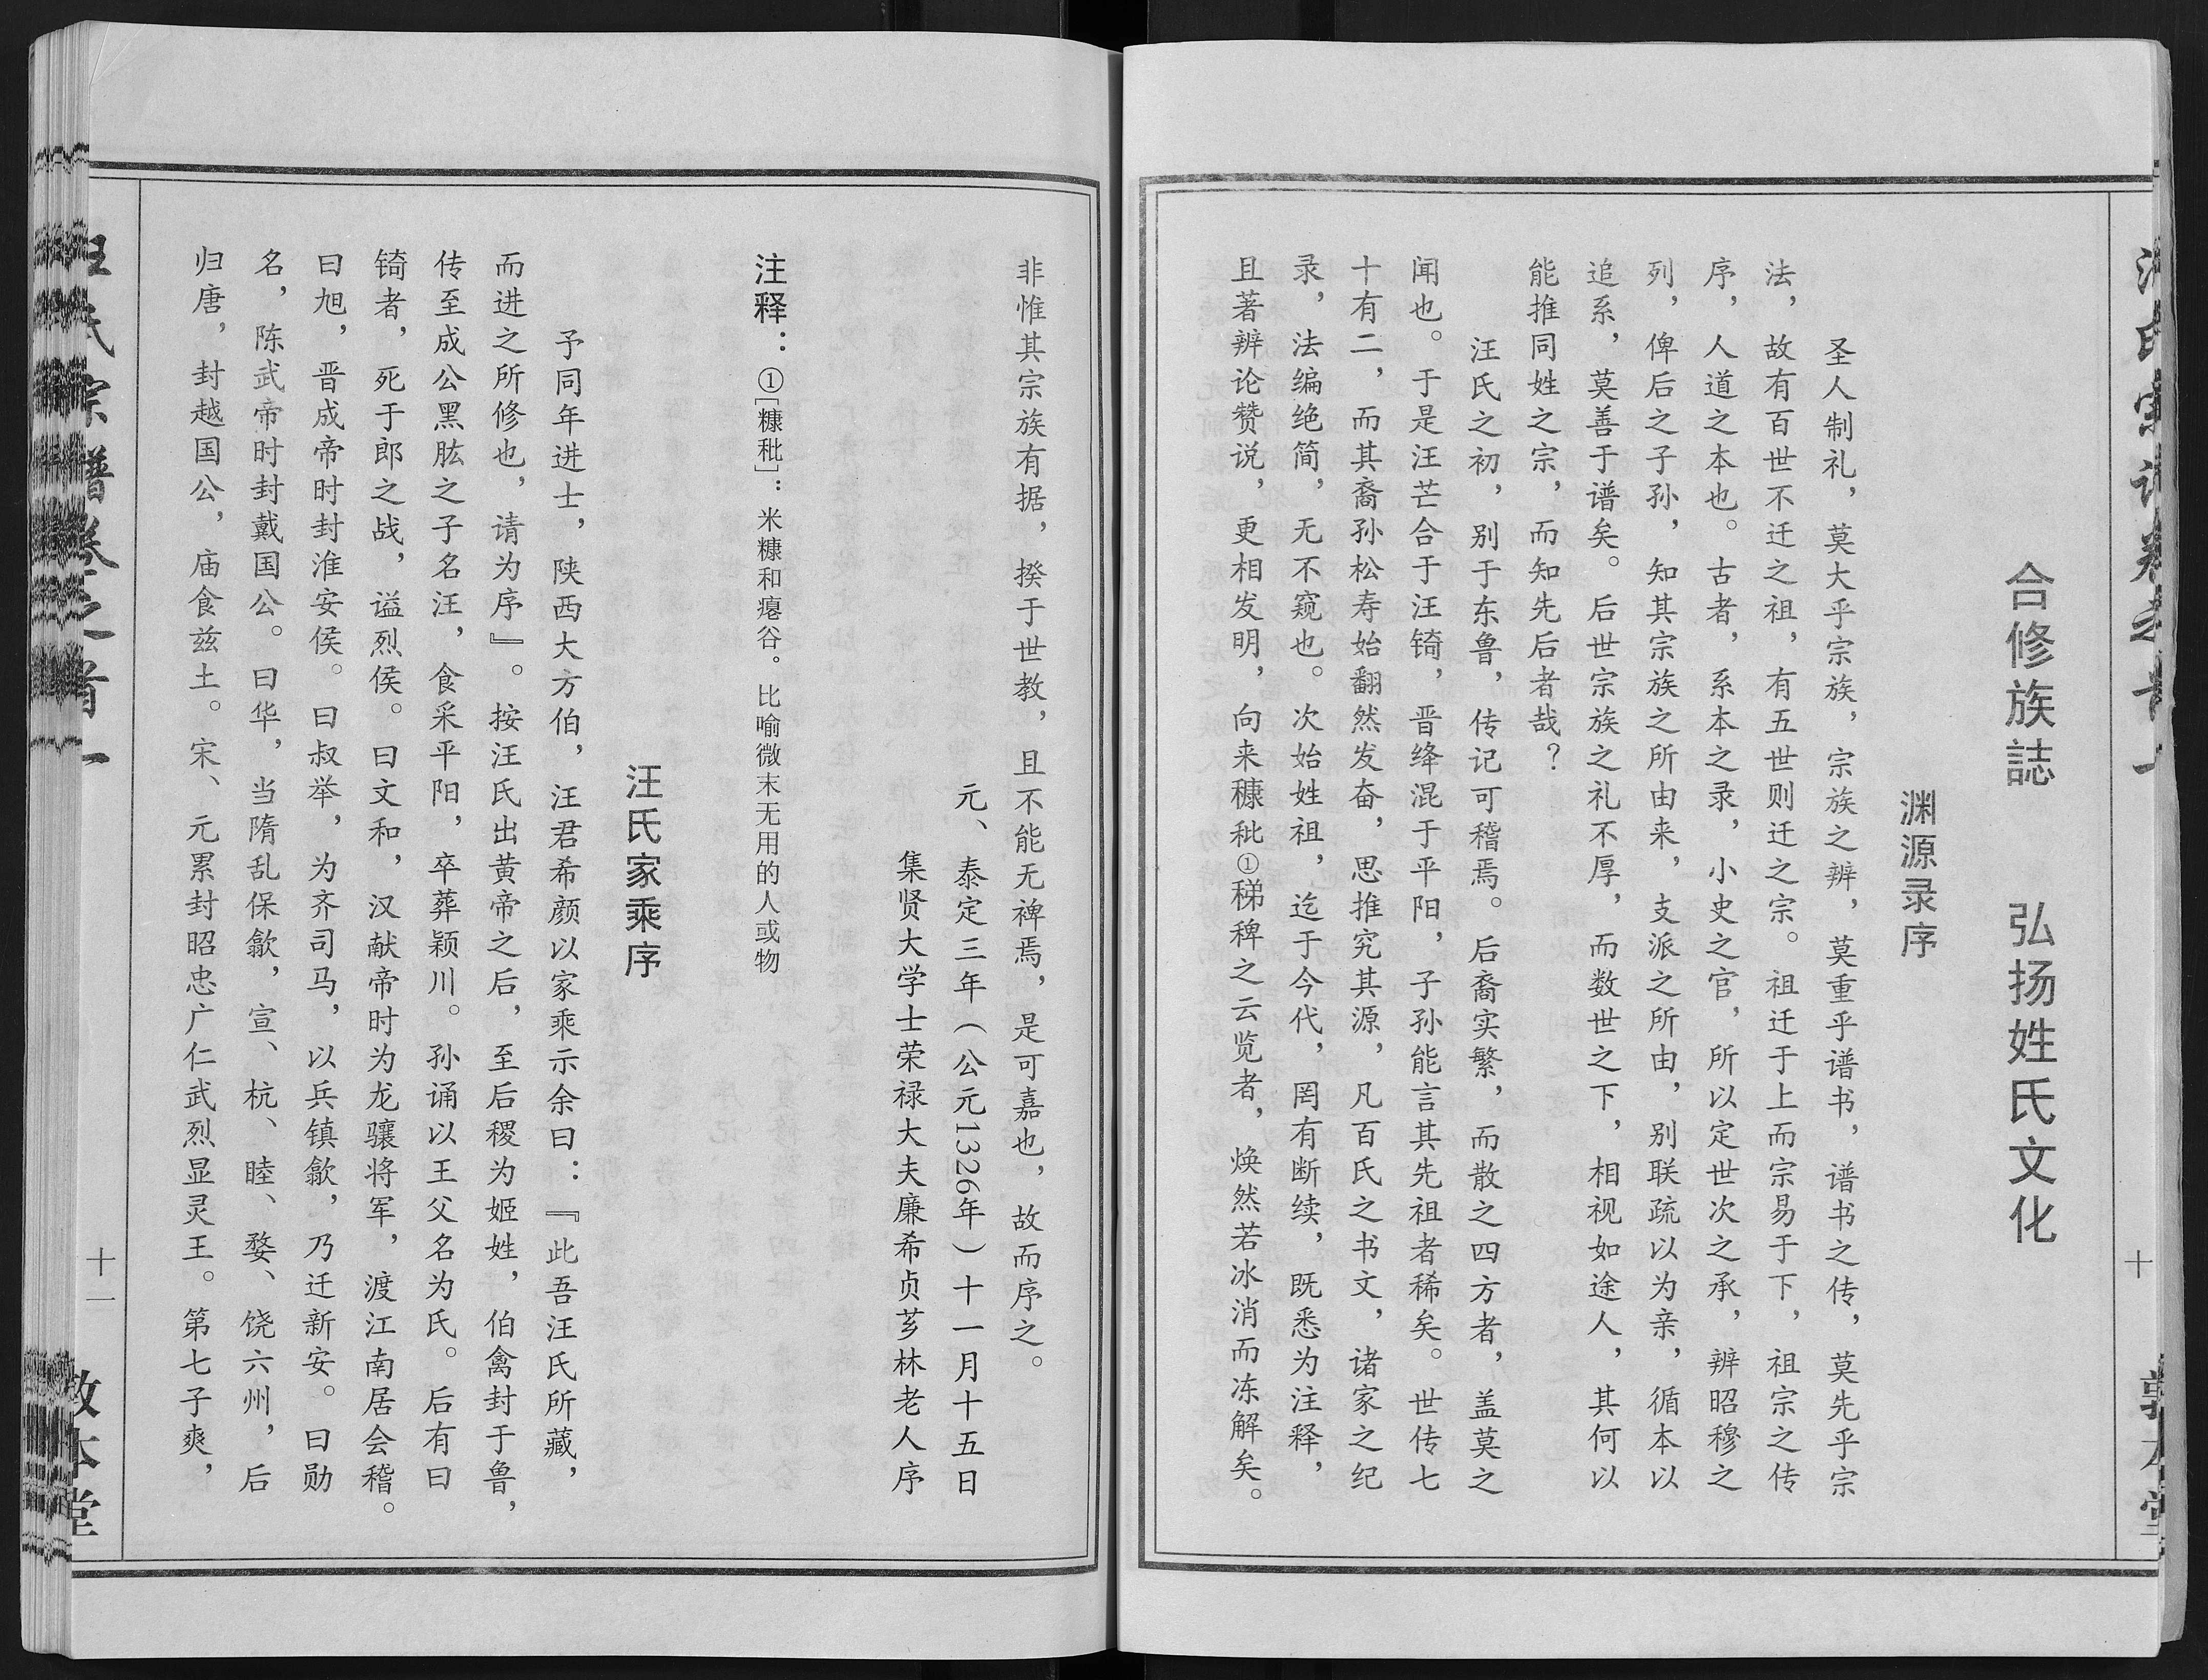 合修族誌　弘扬姓氏文化
渊源录序
圣人制礼，莫大乎宗族，宗族之辨，莫重乎谱书，谱书之传，莫先乎宗
法，故有百世不迁之祖，有五世则迁之宗。祖迁于上而宗易于下，祖宗之传
序，人道之本也。古者，系本之录，小史之官，所以定世次之承，辨昭穆之
列，俾后之子孙，知其宗族之所由来，支派之所由，别联疏以为亲，循本以
追系，莫善于谱矣。后世宗族之礼不厚，而数世之下，相视如途人，其何以
能推同姓之宗，而知先后者哉？
汪氏之初，别于东鲁，传记可稽焉。后裔实繁，而散之四方者，盖莫之
闻也。于是汪芒合于汪锜，晋绛混于平阳，子孙能言其先祖者稀矣。世传七
十有二，而其裔孙松寿始翻然发奋，思推究其源，凡百氏之书文，诸家之纪
录，法编绝简，无不窥也。次始姓祖，迄于今代，罔有断续，既悉为注释，
且著辨论赞说，更相发明，向来穅秕①稊稗之云览者，焕然若冰消而冻解矣。
十
敦本堂
非惟其宗族有据，揆于世教，且不能无裨焉，是可嘉也，故而序之。
元、泰定三年（公元1326年）十一月十五日
集贤大学士荣禄大夫廉希贞芗林老人序
注释：①[糠秕]：米糠和瘪谷。比喻微末无用的人或物
汪氏家乘序
予同年进士，陕西大方伯，汪君希颜以家乘示余曰：『此吾汪氏所藏，
而进之所修也，请为序』。按汪氏出黄帝之后，至后稷为姬姓，伯禽封于鲁，
传至成公黑肱之子名汪，食采平阳，卒葬颖川。孙诵以王父名为氏。后有曰
锜者，死于郎之战，谥烈侯。曰文和，汉献帝时为龙骧将军，渡江南居会稽。
曰旭，晋成帝时封淮安侯。曰叔举，为齐司马，以兵镇歙，乃迁新安。曰勋
名，陈武帝时封戴国公。曰华，当隋乱保歙，宣、杭、睦、婺、饶六州，后
归唐，封越国公，庙食兹土。宋、元累封昭忠广仁武烈显灵王。第七子爽，
汪氏宗谱卷之首一
十一
敦本堂